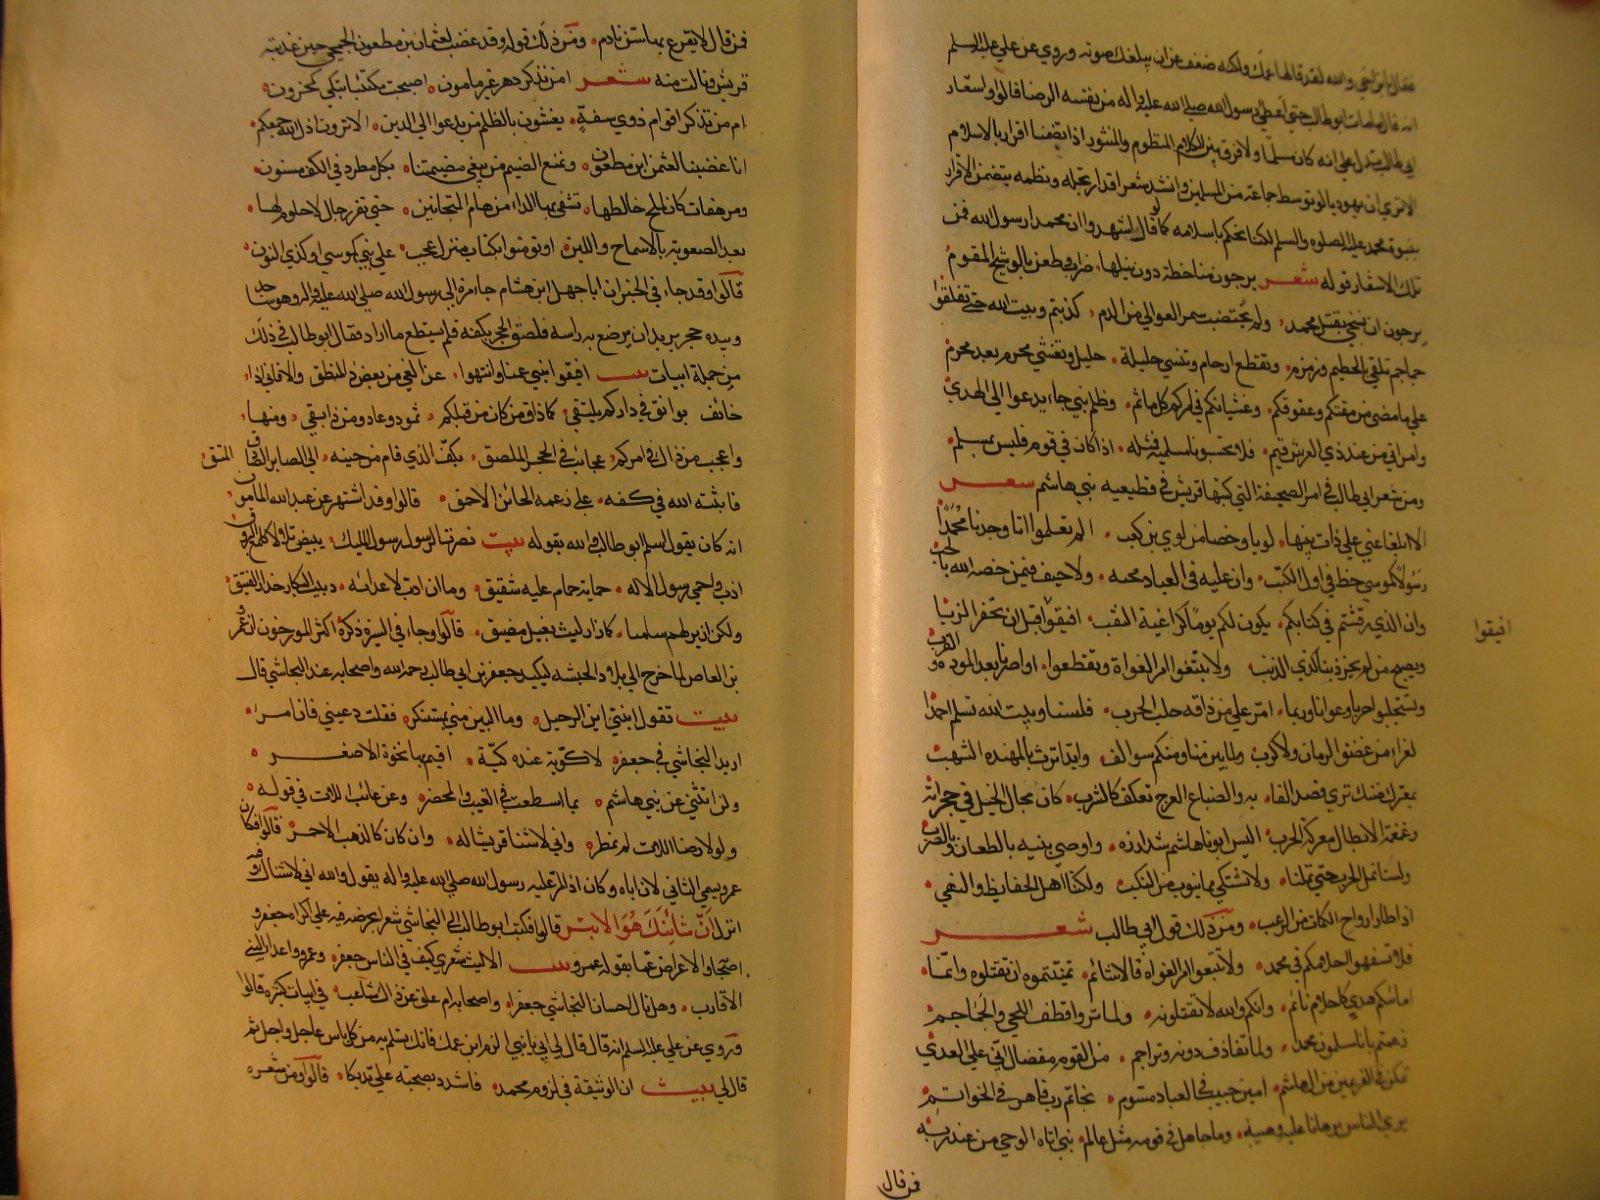 فقال ابن اخي والله لقد قالها عمك ولكنه ضعف عن ان يبلغك صوته وروي عن علي عليه السلم
انه قال ما مات ابو طالب حتي اعطي رسول الله صلي الله عليه واله من نفسه الرضا قالوا واشعار
ابي طالب تدل علي انه كان مسلما ولا فرق بين الكلام المنظوم والمنثور اذا تضمنا اقرار بالاسلام
الا تري ان يهوديا لو توسط جماعة من المسلمين وانشد شعرا قد ارتجله ونظمه يتضمن الاقرار
بنبوة محمد عليه الصلوه والسلم لكنا نحكم باسلامه كما لو قال اشهد وا ان محمدا رسول الله فمن
تلك الاشعار قوله شعر يرجون منا خطة دون نيلها، ضراب وطعن بالوشيج المقوم
يرجون ان نسخي بقتل محمد، ولم تختضب سمر العوالي من الدم، كذبتم وبيت الله حتي تفلقوا
جماجم تلقي بالحطيم وزمزم، وتقطع ارحام وتنسي حليلة، حليل وتغشي محرم بعد محرم
علي ما مضي من مقتكم وعقوقكم، وغشيانكم في امركم كل ماثم، وظلم نبي جاء يدعوا الي الهدي
وامر اتي من عند ذي العرش قيم، فلا تحسبونا مسلميه فمثله، اذا كان في قوم فليس بمسلم
ومن شعر ابي طالب في امر الصحيفة التي كتبتها قريش في قطيعيه بني هاشم شعر
الا ابلغا عني علي ذات بينها، لويا وخصا من لوي بن كعب، الم تعلموا انا وجدنا محمدا
رسولا كموسي خط في اول الكتب، وان عليه في العباد محبه، ولا حيف فيمن خصه الله بالحب
وان الذي رقشتم في كتابكم، يكون لكم يوما كراغية السقب، افيقوا قبل ان تحفر الزبا
افيقوا
ويصبح من لم يجن ذنبا كذي الذنب ولا تتبعوا امر الغواة وتقطعوا، اواصرنا بعد الموده والقرب
وتستجلبوا حربا عوانا وربما، امر علي من ذاقه حلب الحرب، فلسنا وبيت الله نسلم احمدا
لعزاء من عض الزمان ولا كرب، ولما تبن منا ومنكم سوالف وايد اترت بالمهنده الشهب
بمعترك ضنك تري قصد القنا، به والضباع العرج تعكف كالشرب، كان مجال الخيل في حجراته
وغمغمة الابطال معركة الحرب، اليس ابونا هاشم شد ازره، واوصي بنيه بالطعان وبالضرب
ولسنا نمل الحرب حتي تملنا، ولا نشتكي مما ينوب من النكب ولكننا اهل الحفايظ والنهي،
اذا طار ارواح الكمات من الرعب، ومن ذلك قول ابي طالب شعر
فلا تسفهوا احلامكم في محمد، ولا تتبعوا امر الغواة الاشائم، تمنيتموه ان تقتلوه وانما
امانيكم هدي كاحلام نائم، وانكم والله لا تقتلونه، ولما تروا قطف اللحي والجماجم
زعمتم بانا مسلمون محمدا، ولما نقاذف دونه ونزاحم، من القوم مفضال ابي علي العدي
تمكن في الفرعين من ال هاشم، امين حبيب في العباد مسوم، بخاتم رب قاهر في الخواتم
يري الناس برهانا عليه وهيبه، وما جاهل في قومه مثل عالم، نبي اتاه الوحي من عند ربه
فمن قال
فمن قال لا يقرع بها سن نادم، ومن ذلك قوله وقد غضب لعثمان بن مظعون الجمحي حين عذبته
قريش ونالت منه شعر امن تذكر دهر غير مامون، اصبحت مكتئبا تبكي كمحزون،
ام من تذكر اقوام ذوي سفه، يغشون بالظلم من يدعوا الي الدين، الا ترون اذل الله جمعكم،
انا غضبنا لعثمن ابن مظعون، ونمنع الضيم من يبغي مضيمتنا، بكل مطرد في الكف مسنون،
ومرهفات كان الملح خالطها، تشفي بها الداء من هام المجانين، حتي تقر رجال لا حلوم لها،
بعد الصعوبة بالاسماح واللين، او تومنوا بكتاب منزل عجب، علي نبي كموسي او كذي النون،
قالوا وقد جاء في الخبر ان ابا جهل ابن هشام جاء مرة الي رسول الله صلي الله عليه واله وهو ساجد
وبيده حجر يريد ان يرضخ به راسه فلصق الحجر بكفه فلم يستطع ما اراد فقال ابو طالب في ذلك
من جملة ابيات بيت افيقوا بني عمنا وانتهوا، عن الغي من بعض ذا المنطق والا فاني اذا،
خائف بوائق في داركم يلتقي، كما ذاق من كان من قبلكم، ثمود وعاد ومن ذا بقي، ومنها،
واعجب من ذاك في امركم، عجائب في الحجر الملصق، بكف الذي قام من حينه، الي الصابر الصادق المتقي،
فاثبته الله في كفه، علي زعمه الخائن الاحمق، قالوا وقد اشتهر عن عبد الله المامون
انه كان يقول اسلم ابو طالب والله بقوله بيت نصرت الرسول رسول المليك، ببيض تلالا كلمع البروق
اذب واحمي رسول الاله، حماية حام عليه شفيق، وما ان ادب لاعدائه، دبيب البكار حذار الفنيق
ولكن ازير لهم ساميا، كما زار ليث بغيل مضيق، قالوا وجاء في السيرة وذكره اكثر المورخون ان عمرو
بن العاص لما خرج الي بلاد الحبشه ليكيد جعفر بن ابي طالب رحمه الله واصحابه عند النجاشي قال
بيت تقول ابنتي اين الرحيل، وما البين مني بمستنكر، فقلت دعيني فاني امرء،
اريد النجاشي في جعفر، لاكويه عنده كية، اقيم بها نخوة الاصعر،
ولن انثني عن بني هاشم، بما اسطعت في الغيب والمحضر، وعن عائب اللات في قوله،
ولولا رضا اللات لم نمطر، واني لاشنا قريش اله، وان كان كالذهب الاحمر، قالوا فكان
عمرو يسمي الشاني لان اباه وكان اذا مر عليه رسول الله صلي الله عليه واله يقول والله اني لاشناك وفيه
انزل ان شانئك هو الابتر قالوا فكتب ابو طالب الي النجاشي شعرا يحرضه فيه علي اكرام جعفر و
اصحابه والاعراض عما يقوله عمرو بيت الا ليت شعري كيف في الناس جعفر، وعمرو واعداء النبي
الاقارب، وهل نال احسان النجاشي جعفرا، واصحابه ام عاق عن ذاك شاغب، في ابيات كثيره قالوا
وروي عن علي عليه السلم انه قال قال لي ابي يا بني الزم ابن عمك فانك تسلم به من كل باس عاجل واجل ثم
قال لي بيت ان الوثيقة في لزوم محمد، فاشدد بصحبته علي يديكا، قالوا ومن شعره